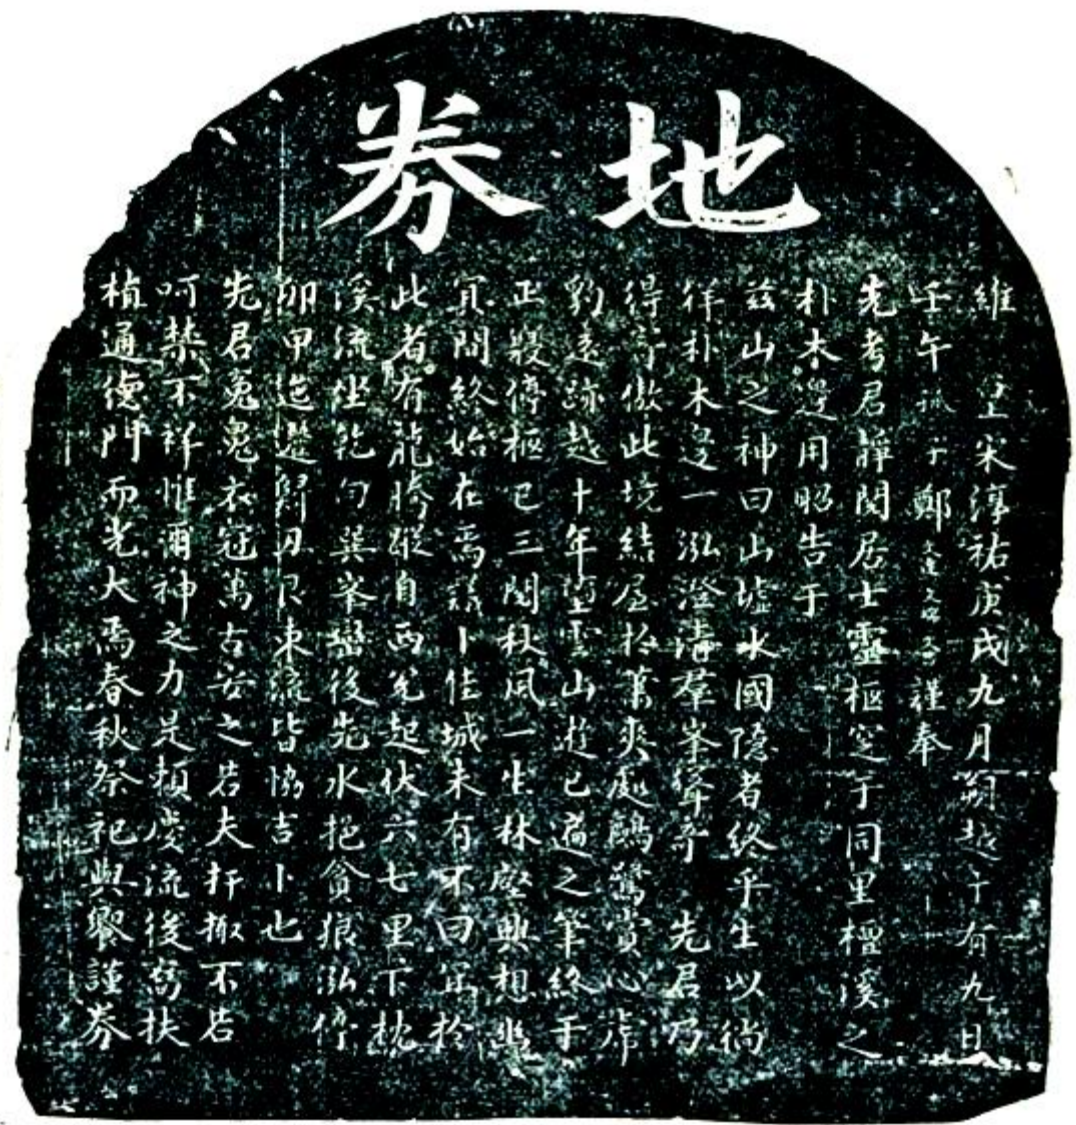 地券
維 皇宋淳祐庚戌九月朔越十有九日
壬午孤子鄭文達文 謹奉
先考君靜閑居士靈柩窆于同里檀溪之
朴木邊用昭告于
茲山之神曰山墟水國隱者終乎生以徜
徉朴木邊一泓澄清羣峯聳奇 先君乃
得等傲此境結屋於菁爽處鷗鷺賞心虎
豹遠跡越十年墮雲山遊已適之筆終于
正寢停柩已三閱秋風一生林壑興想幽
冥間終始在焉議卜佳城未有不曰寓於
此者有龍勝蹤自西兌起伏六七里下枕
溪流坐乾向巽峯巒後先水挹貪狼泓停
卯甲迤邐歸丑艮東流皆協吉卜也
先君冤鬼衣冠萬古安之若夫扞撤不若
呵禁不祥惟爾神之力是賴慶流後裔扶
植通德門而光大焉春秋祭祀與饗謹券